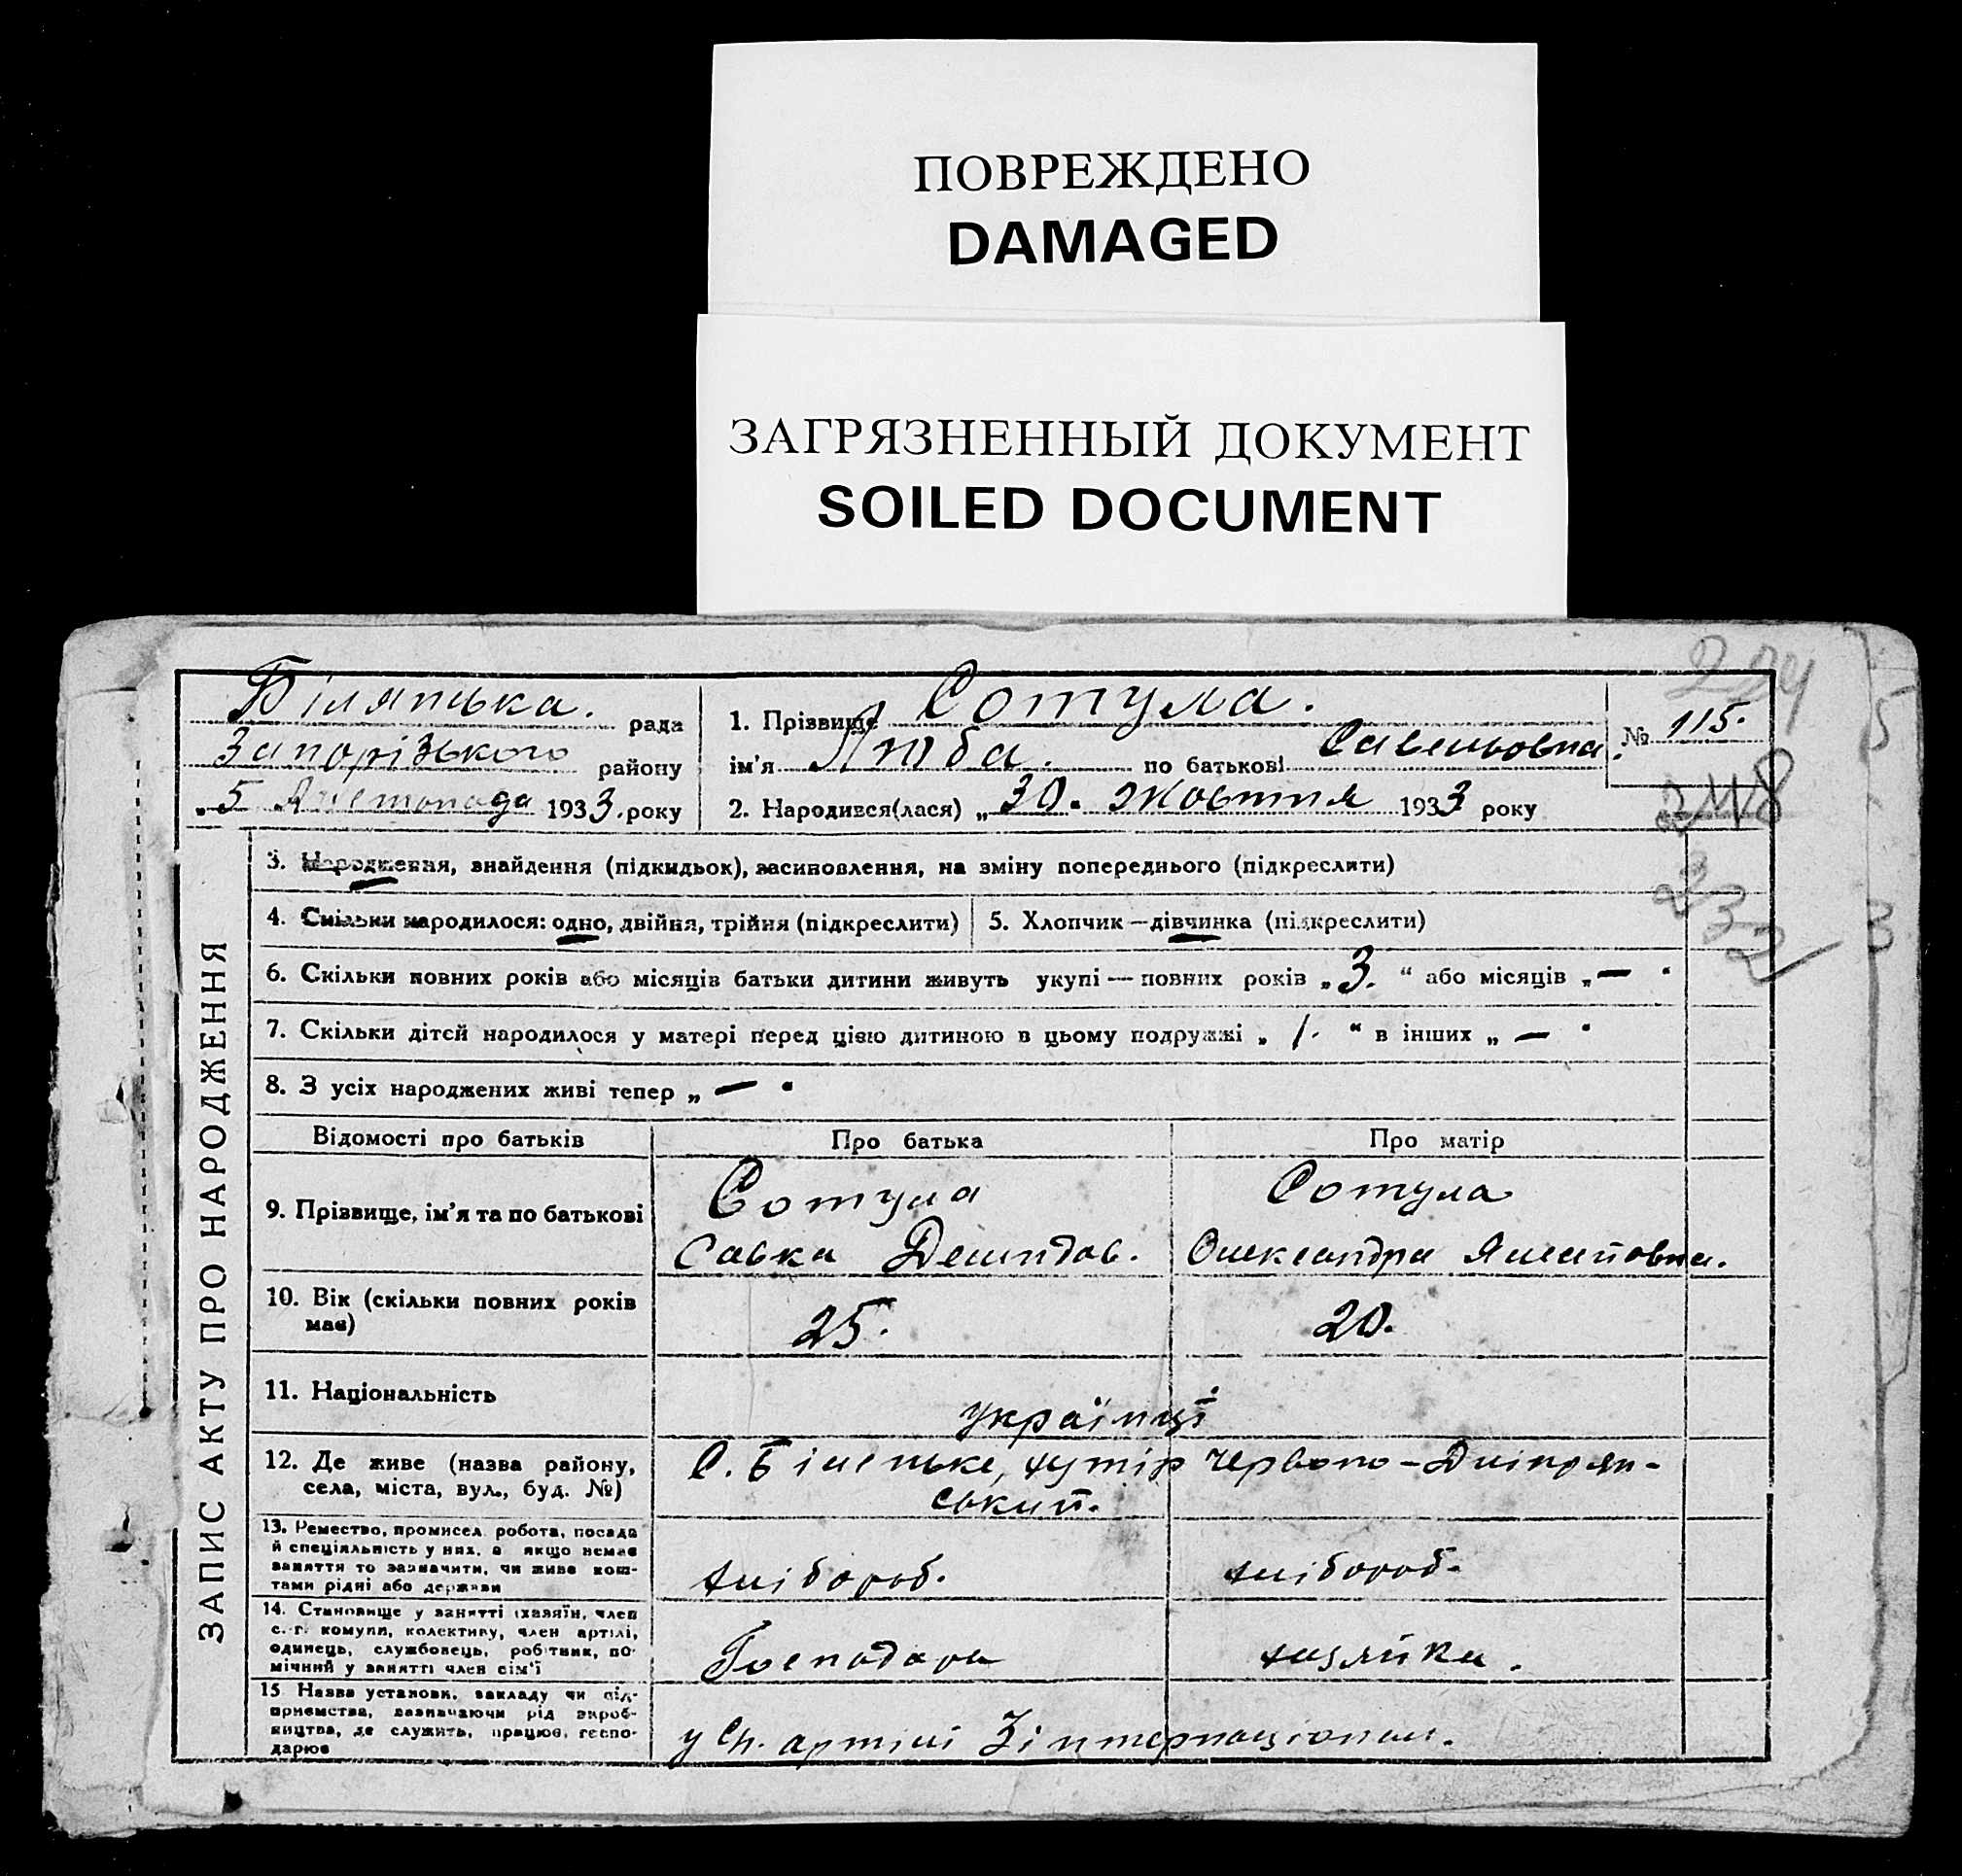 ПОВРЕЖДЕНО
DAMAGED
ЗАГРЯЗНЕННЫЙ ДОКУМЕНТ
SOILED DOCUMENT
224
5
Біляньська. рада
Запорізького району
„5 Листопада 1933. року
1. Прізвище Сотула.
ім'я Люба. по батькові Савельовна.
2. Народився(лася) „30. Жовтня 1933 року
№ 115.
248
232
3
ЗАПИС АКТУ ПРО НАРОДЖЕННЯ
3. Народження, знайдення (підкидьок), засиновлення, на зміну попереднього (підкреслити)
4. Скільки народилося: одно, двійня, трійня (підкреслити) 5. Хлопчик — дівчинка (підкреслити)
6. Скільки повних років або місяців батьки дитини живуть укупі — повних років „3. “ або місяців „—
7. Скільки дітей народилося у матері перед цією дитиною в цьому подружжі „ 1. “ в інших „ —
8. З усіх народжених живі тепер „ —
Відомості про батьків Про батька Про матір
9. Прізвище, ім'я та по батькові
Сотула Сотула
Савка Демидов. Олександра
10. Вік (скільки повних років має)
25. 20.
11. Національність
українці
12. Де живе (назва району,
села, міста, вул., буд. №)
С. Біленьке, хутір Червоно-Дніпрян-
ський.
13. Ремество, промисел, робота, посада
й спеціяльність у них, а якщо немає
заняття то зазначити, чи живе кош-
тами рідні або держави
хлібороб. хлібороб.
14. Становище у занятті (хазяїн, член
с.-г. комуни, колективу, член артілі,
одинець, службовець, робітник, по-
мічний у занятті член сім'ї
Господарь хазяйка.
15 Назва установи, закладу чи під-
приємства, зазначаючи рід вироб-
ництва, де служить, працює, госпо-
дарює
у артілі 3 інтернаціонал.